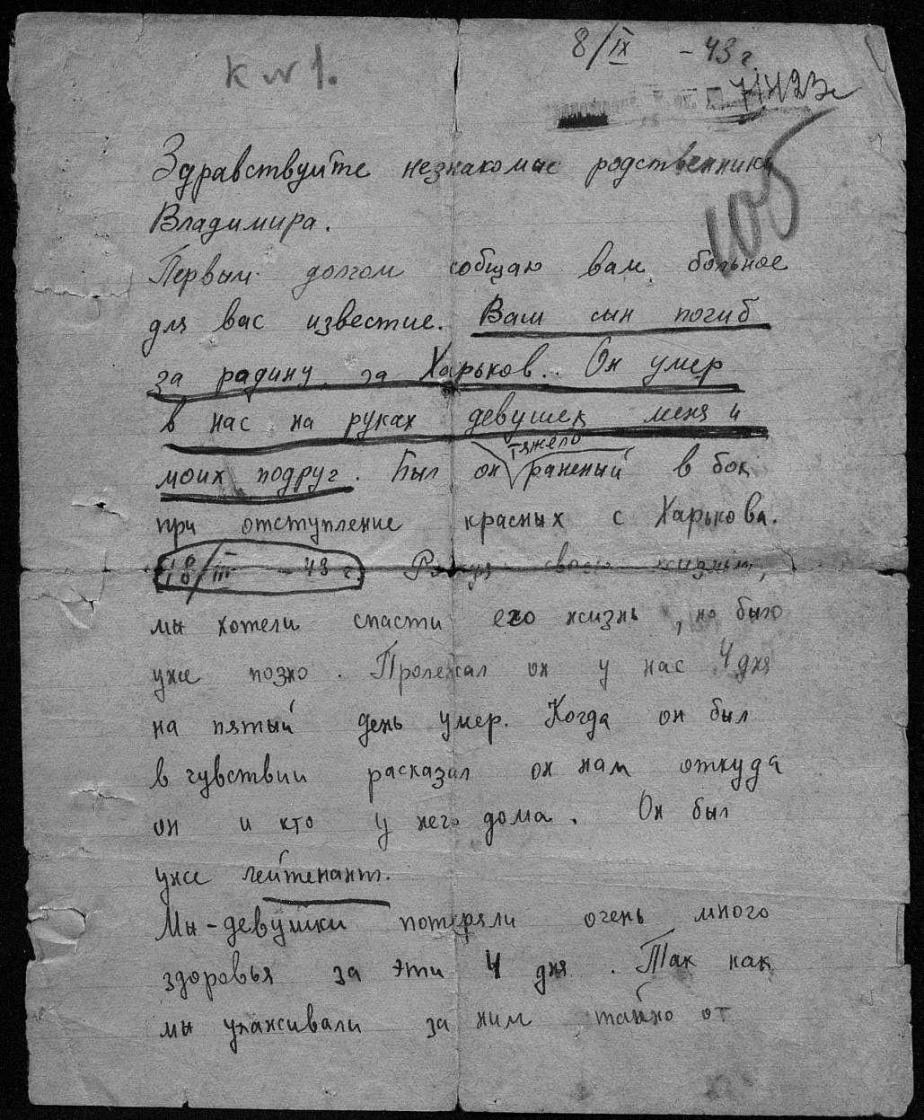 8/IX - 43 г.
к № 1.
105
Здравствуйте незнакомые родственники
Владимира.
Первым долгом собщаю вам больное
для вас известие. Ваш сын погиб
за радину за Харьков. Он умер
в нас на руках девушек меня и
моих подруг. Был он тяжело раненый в бок
при отступление красных с Харькова.
18/III - 43 г. Рискуя своею жизнью,
мы хотели спасти его жизнь, но было
уже позно. Пролежал он у нас 4 дня
на пятый день умер. Когда он был
в чувствии расказал он нам откуда
он и кто у него дома. Он был
уже лейтенант.
Мы-девушки потеряли очень много
здоровья за эти 4 дня. Так как
мы ухаживали за ним тайно от